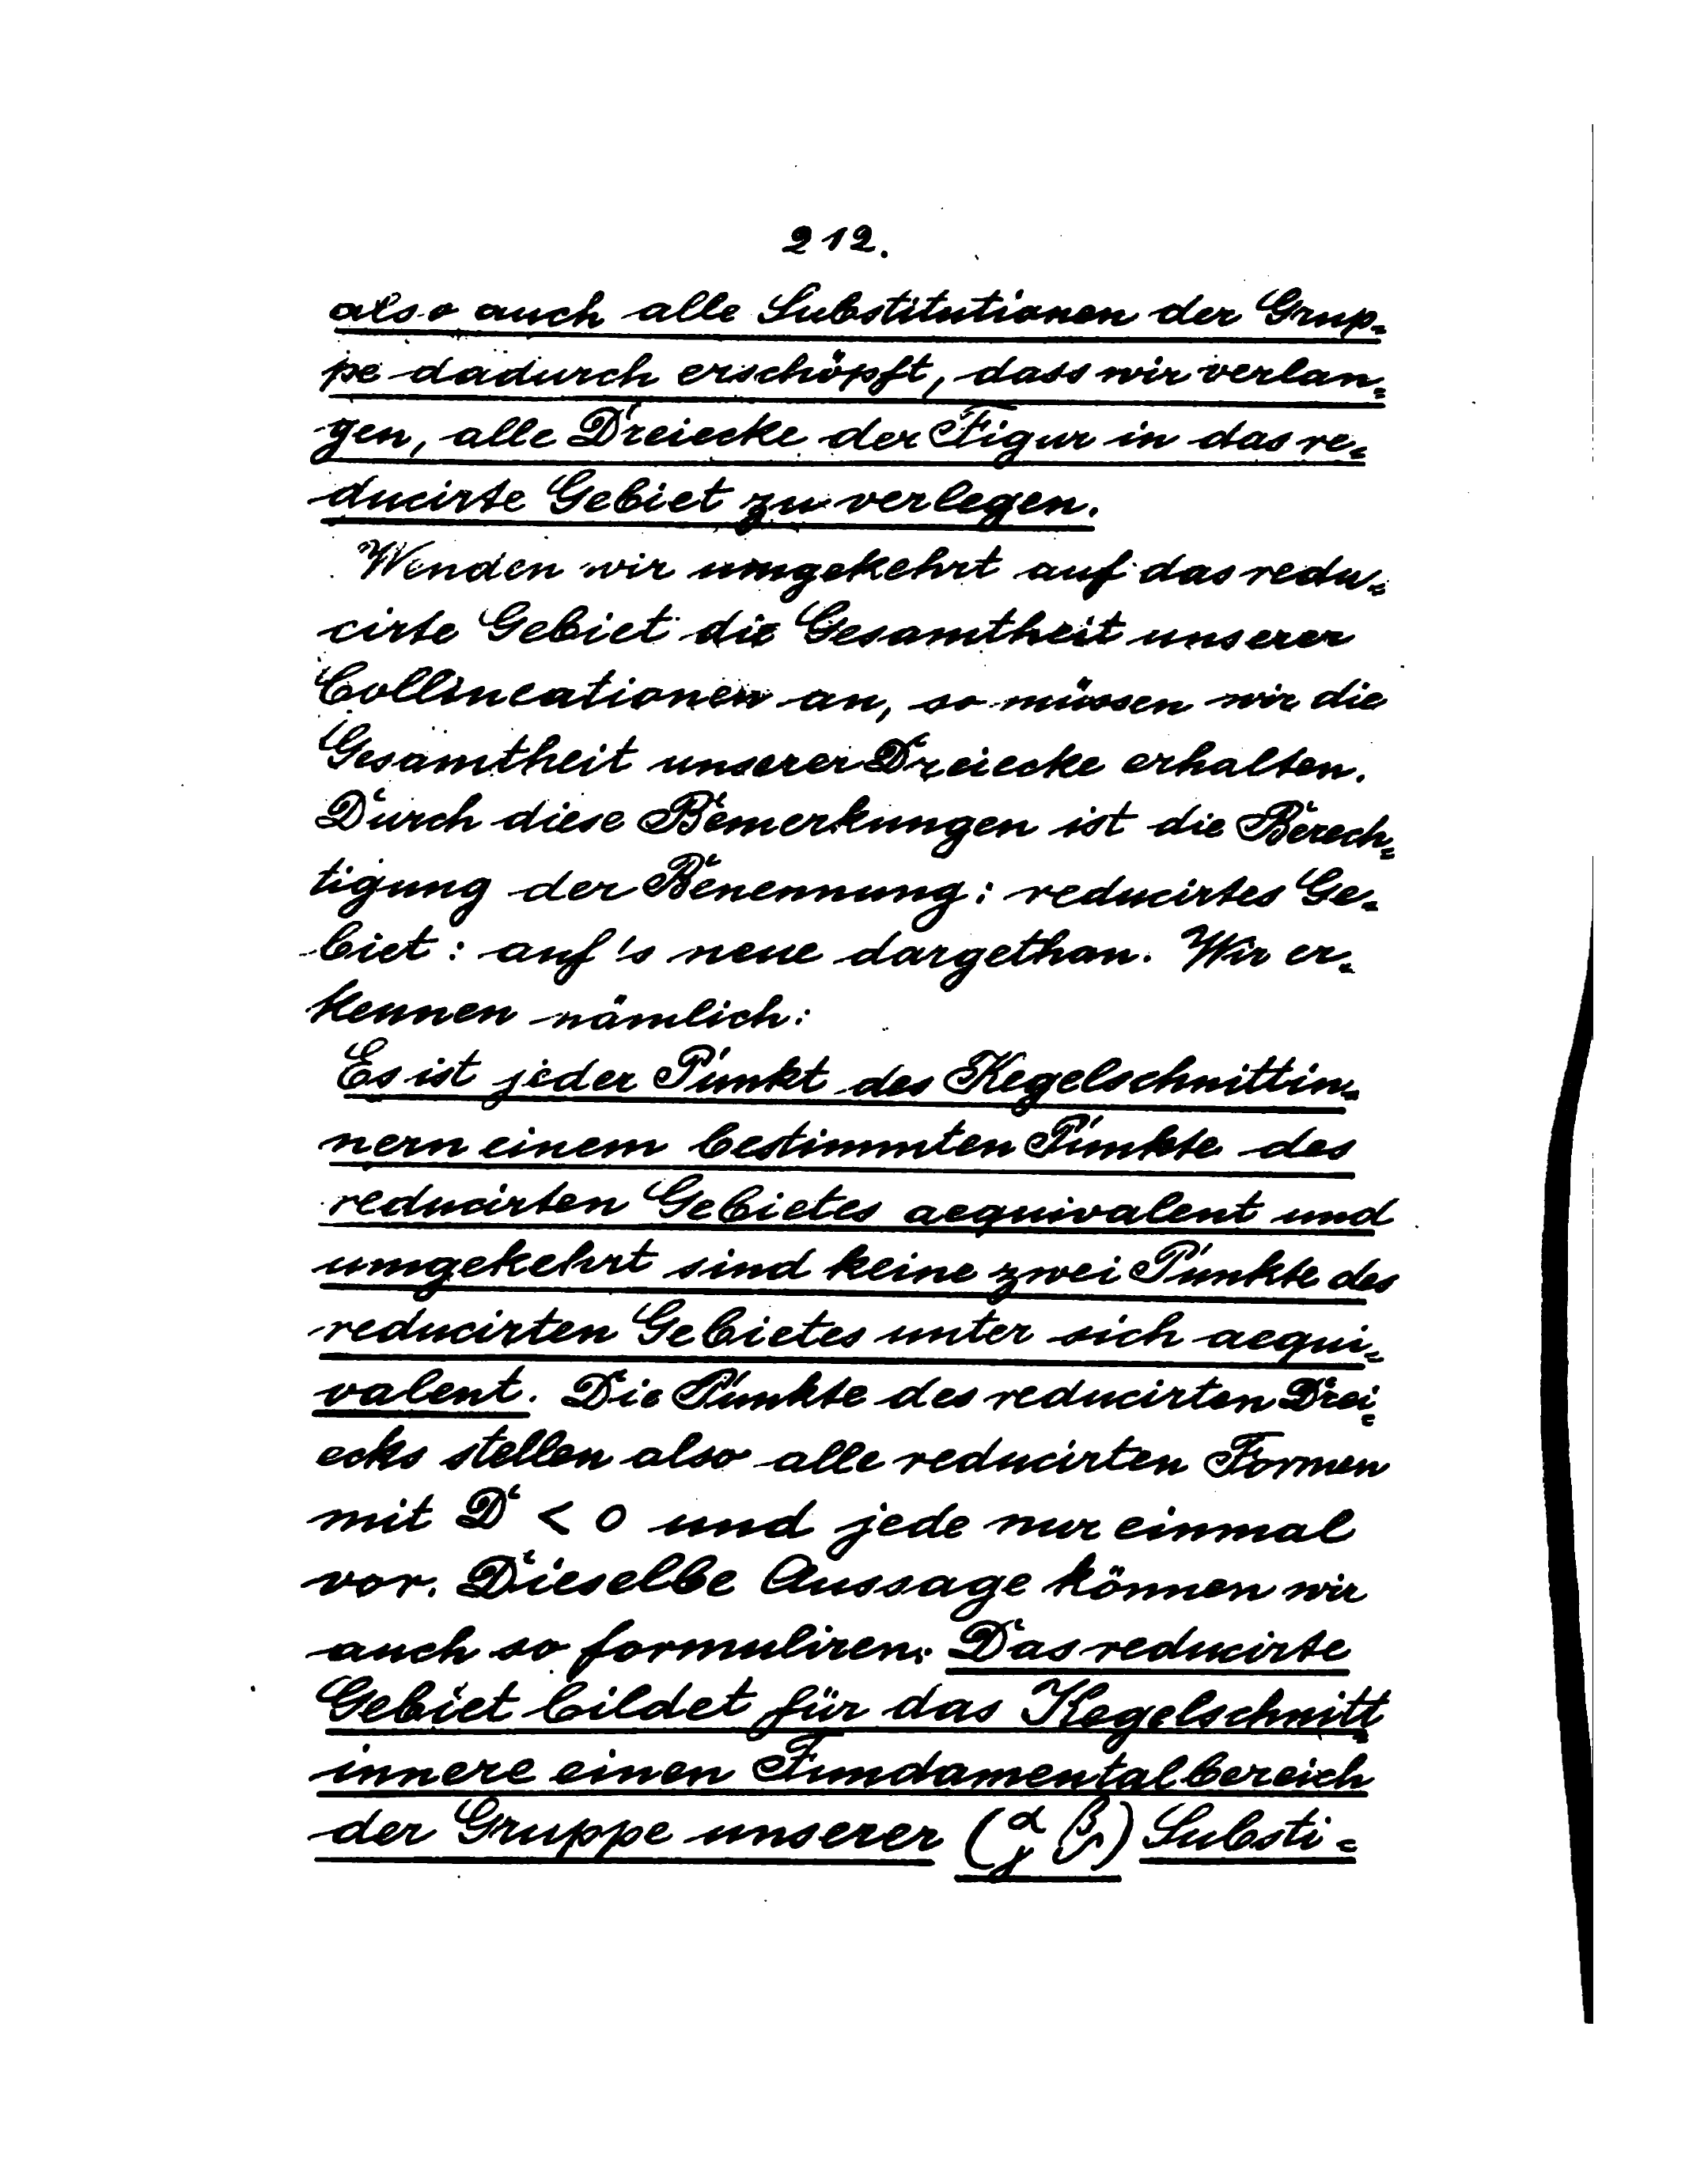 212.
also auch alle Substitutionen der Grup-
pe dadurch erschöpft, dass wir verlan-
gen, alle Dreiecke der Figur in das re-
ducirte Gebiet zu verlegen.
Wenden wir umgekehrt auf das redu-
cirte Gebiet die Gesamtheit unserer
Collineationen an, so müssen wir die
Gesamtheit unserer Dreiecke erhalten.
Durch diese Bemerkungen ist die Berech-
tigung der Benennung: reducirtes Ge-
biet: auf's neue dargethan. Wir er-
kennen nämlich:
Es ist jeder Punkt des Kegelschnittin-
nern einem bestimmten Punkte des
reducirten Gebietes aequivalent und
umgekehrt sind keine zwei Punkte des
reducirten Gebietes unter sich aequi-
valent. Die Punkte des reducirten Drei-
ecks stellen also alle reducirten Formen
mit D < 0 und jede nur einmal
vor. Dieselbe Aussage können wir
auch so formuliren: Das reducirte
Gebiet bildet für das Kegelschnitt-
innere einen Fundamentalbereich
der Gruppe unserer (α β γ δ) Substi-